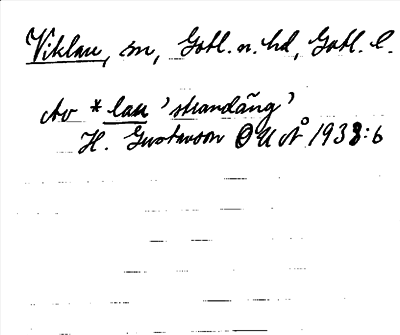 Viklau, sn, Gotl. n. hd, Gotl. l.
Av *lau 'strandäng'
H. Gustavson OUÅ 1938:6